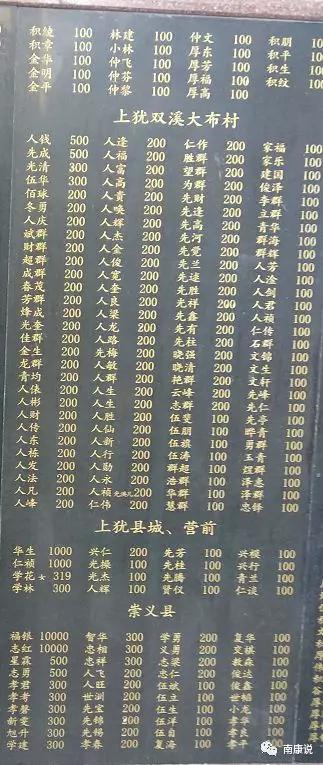 积绫 林建 仲文 积朋
积章 小林 厚东 积平
金华 仲飞 厚芳 积生
金明 仲芬 厚福 积纹
金平 仲黎 厚高
上犹双溪大布村
人钱 500 人逢 200 仁作 200 家福 100
先成 500 人福 200 胜群 200 家乐 100
光清 300 人富 200 望群 200 建国 100
伍华 300 人高 200 为群 200 俊泽 100
佰球 200 人贵 200 先财 200 李群 100
冬勇 200 人唤 200 先逢 200 立群 100
人庆 200 人辉 200 先高 200 青华 100
斌群 200 人杰 200 先河 200 群海 100
财群 200 人金 200 先党 200 群辉 100
超群 200 人俊 200 先兰 200 人芳 100
成群 200 人宽 200 先速 200 人淦 100
春茂 200 人奎 200 先胜 200 人剑 100
芳群 200 人良 200 先祥 200 人君 100
烽成 200 人梁 200 先鑫 200 人祯 100
光奎 200 人龙 200 先有 200 仁传 100
佳群 200 人路 200 先柱 200 石群 100
金生 200 先梅 200 晓强 200 文锦 100
龙群 200 人敏 200 晓清 200 文生 100
青均 200 人群 200 艳群 200 文轩 100
人俵 200 人生 200 云峰 200 先峰 100
人彬 200 人生 200 志群 200 先仁 100
人财 200 人胜 200 伍斐 200 先亭 100
人传 200 人仙 200 伍朋 200 晔青 100
人东 200 人新 200 伍旗 200 勇群 100
人栋 200 人行 200 伍涛 200 玉青 100
人发 200 人勋 200 群超 100 煜群 100
人法 200 人永 200 浩群 100 泽惠 100
人凡 200 人祯 200 华群 100 泽群 100
人峰 200 仁伟 200 慧群 100 忠铎 100
上犹县城、营前
华生 1000 兴仁 200 先芳 100 兴模 100
仁祯 1000 光操 100 先桂 100 兴行 100
学花 319 光杰 100 先腾 100 青兰 100
学林 300 人辉 100 贤仪 100 仁谈 100
崇义县
福银 10000 智华 300 学勇 200 复华 100
志红 10000 忠相 300 义勇 200 交祺 100
星霖 500 忠祥 300 忠梁 200 教森 100
志勇 500 人飞 200 忠仁 200 俊达 100
孝君 300 人旺 200 伍斌 100 俊鑫 100
孝考 300 世洲 200 伍主 100 世韬 100
孝磬 300 先宝 200 伍生 100 小龙 100
新雯 300 先锦 200 伍洋 100 孝华 100
旭升 300 先锡 200 伍自 100 孝良 100
学建 300 孝春 200 复海 100 孝平 100
南康说